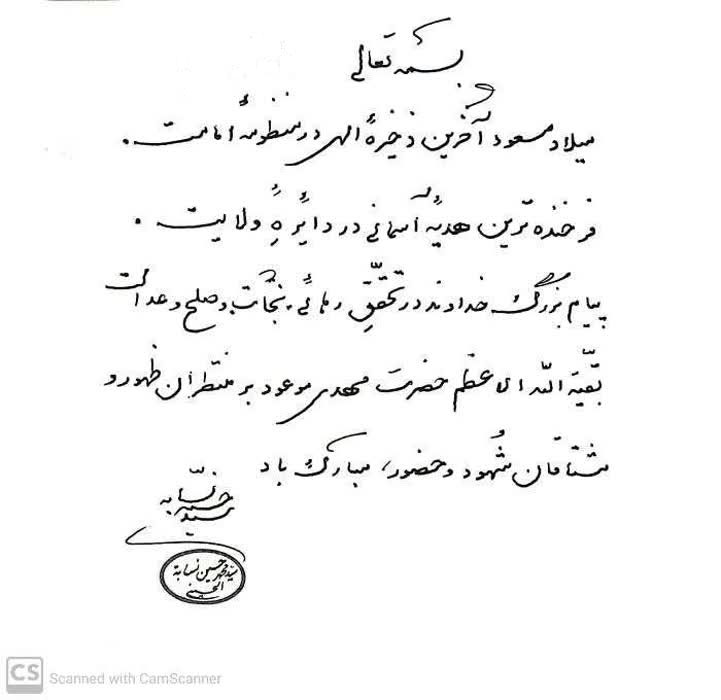 بسمه تعالی
میلاد مسعود آخرین ذخیرهٔ الهی در منظومهٔ امامت.
فرخنده‌ترین هدیهٔ آسمانی در دایرهٔ ولایت.
پیام بزرگ خداوند در تحقّقِ رهائی، نجات، وصلح وعدالت
بقیّة اللّه الاعظم حضرت مهدی موعود بر منتظران ظهور و
مشتاقان شُهود وحضور، مبارک باد
سید حسین نسّابه
سیّد محمد حسین نسّابة
الحسینی
CS Scanned with CamScanner